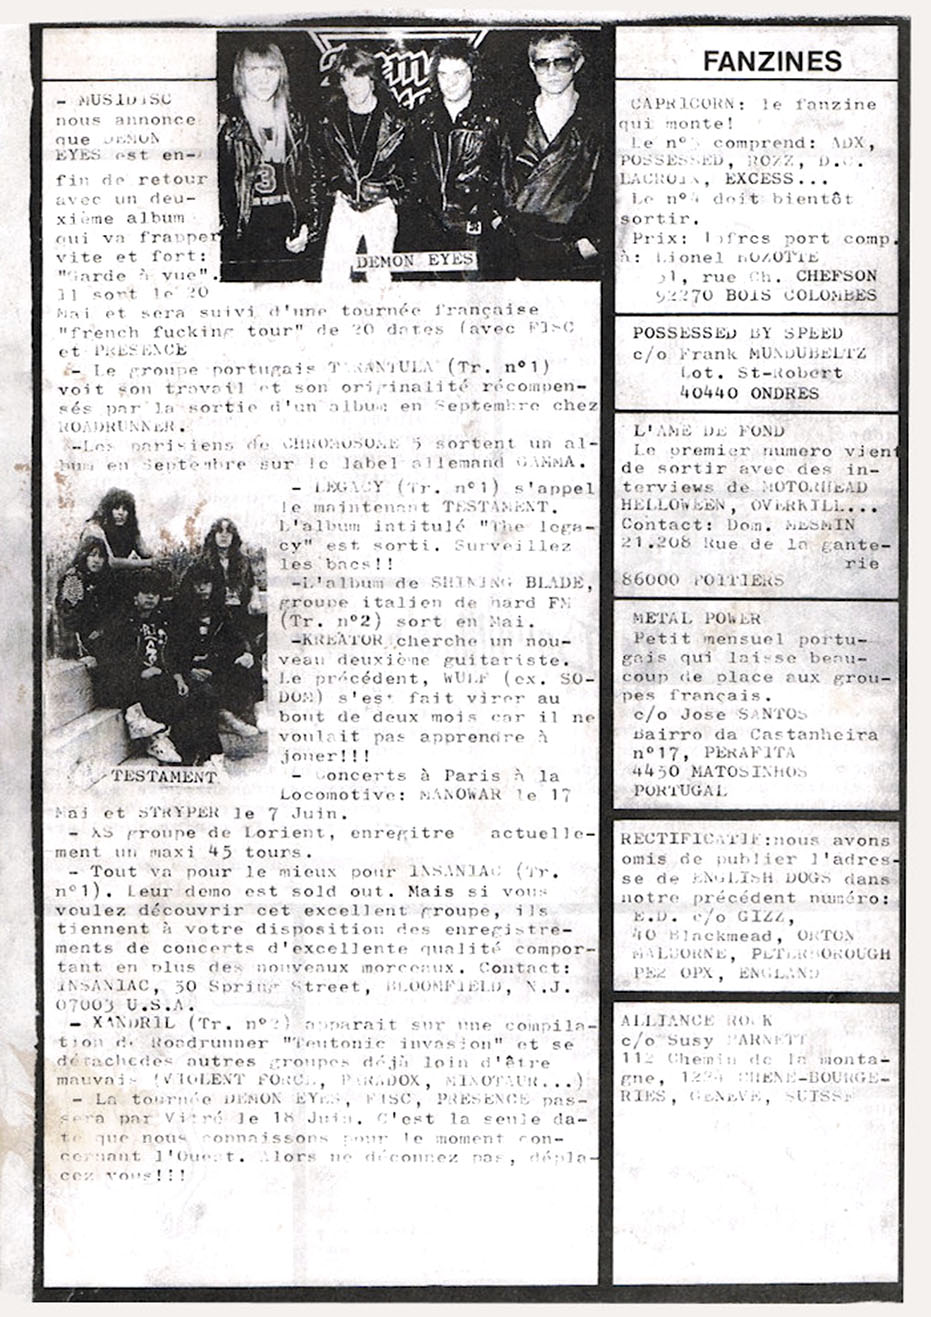 - MUSIDISC
nous annonce
que DEMON
EYES est en-
fin de retour
avec un deu-
xième album
qui va frapper
vite et fort:
"Garde à vue".
Il sort le 20
Mai et sera suivi d'une tournée française
"french fucking tour" de 20 dates (avec FISC
et PRESENCE
DEMON EYES
- Le groupe portugais TARANTULA (Tr. n°1)
voit son travail et son originalité récompen-
sés par la sortie d'un album en Septembre chez
ROADRUNNER.
-Les parisiens de CHROMOSOME 5 sortent un al-
bum en Septembre sur le label allemand GAMMA.
- LEGACY (Tr. n°1) s'appel
le maintenant TESTAMENT.
L'album intitulé "The lega-
cy" est sorti. Surveillez
les bacs!!
-L'album de SHINING BLADE,
groupe italien de hard FM
(Tr. n°2) sort en Mai.
-KREATOR cherche un nou-
veau deuxième guitariste.
Le précédent, WULF (ex. SO-
DOM) s'est fait virer au
bout de deux mois car il ne
voulait pas apprendre à
jouer!!!
TESTAMENT
- Concerts à Paris à la
Locomotive: MANOWAR le 17
Mai et STRYPER le 7 Juin.
- XS groupe de Lorient, enregitre actuelle-
ment un maxi 45 tours.
- Tout va pour le mieux pour INSANIAC (Tr.
n°1). Leur demo est sold out. Mais si vous
voulez découvrir cet excellent groupe, ils
tiennent à votre disposition des enregistre-
ments de concerts d'excellente qualité compor-
tant en plus des nouveaux morceaux. Contact:
INSANIAC, 50 Spring Street, BLOOMFIELD, N.J.
07003 U.S.A.
- XANDRIL (Tr. n°2) apparait sur une compila-
tion de Roadrunner "Teutonic invasion" et se
détachedes autres groupes déjà loin d'être
mauvais (VIOLENT FORCE, PARADOX, MINOTAUR...)
- La tournée DEMON EYES, FISC, PRESENCE pas-
sera par Vitré le 18 Juin. C'est la seule da-
te que nous connaissons pour le moment con-
cernant l'Ouest. Alors ne déconnez pas, dépla-
cez vous!!!
FANZINES
CAPRICORN: le fanzine
qui monte!
Le n° comprend: ADX,
POSSESSED, ROZZ, D.C.
LACROIX, EXCESS...
Le n°4 doit bientôt
sortir.
Prix: port comp.
à: Lionel
rue Ch. CHEFSON
92270 BOIS COLOMBES
POSSESSED BY SPEED
c/o Frank MUNDUBELTZ
Lot. St-Robert
40440 ONDRES
L'AME DE FOND
Le premier numero vient
de sortir avec des in-
terviews de MOTORHEAD
HELLOWEEN, OVERKILL...
Contact: Dom. MESMIN
21.208 Rue de la gante-
rie
86000 POITIERS
METAL POWER
Petit mensuel portu-
gais qui laisse beau-
coup de place aux grou-
pes français.
c/o Jose SANTOS
Bairro da Castanheira
n°17, PERAFITA
4450 MATOSINHOS
PORTUGAL
RECTIFICATIF:nous avons
omis de publier l'adres-
se de ENGLISH DOGS dans
notre précédent numéro:
E.D. c/o GIZZ,
40 Blackmead, ORTON
MALBORNE, PETERBOROUGH
PE2 OPX, ENGLAND
ALLIANCE ROCK
c/o Susy PARNETT
112 Chemin de la monta-
gne, 1224 CHENE-BOURGE-
RIES, GENEVE, SUISSE